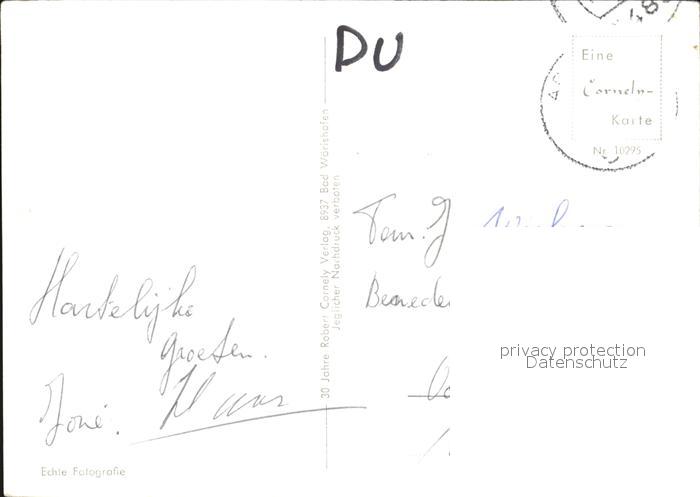 DU
Eine
Cornely-
Karte
Nr. 10295
30 Jahre Robert Cornely Verlag, 8937 Bad Wörishofen
Jeglicher Nachdruck verboten
Fam. J
Benede
Hartelijke
groeten.
José.
privacy protection
Datenschutz
Echte Fotografie